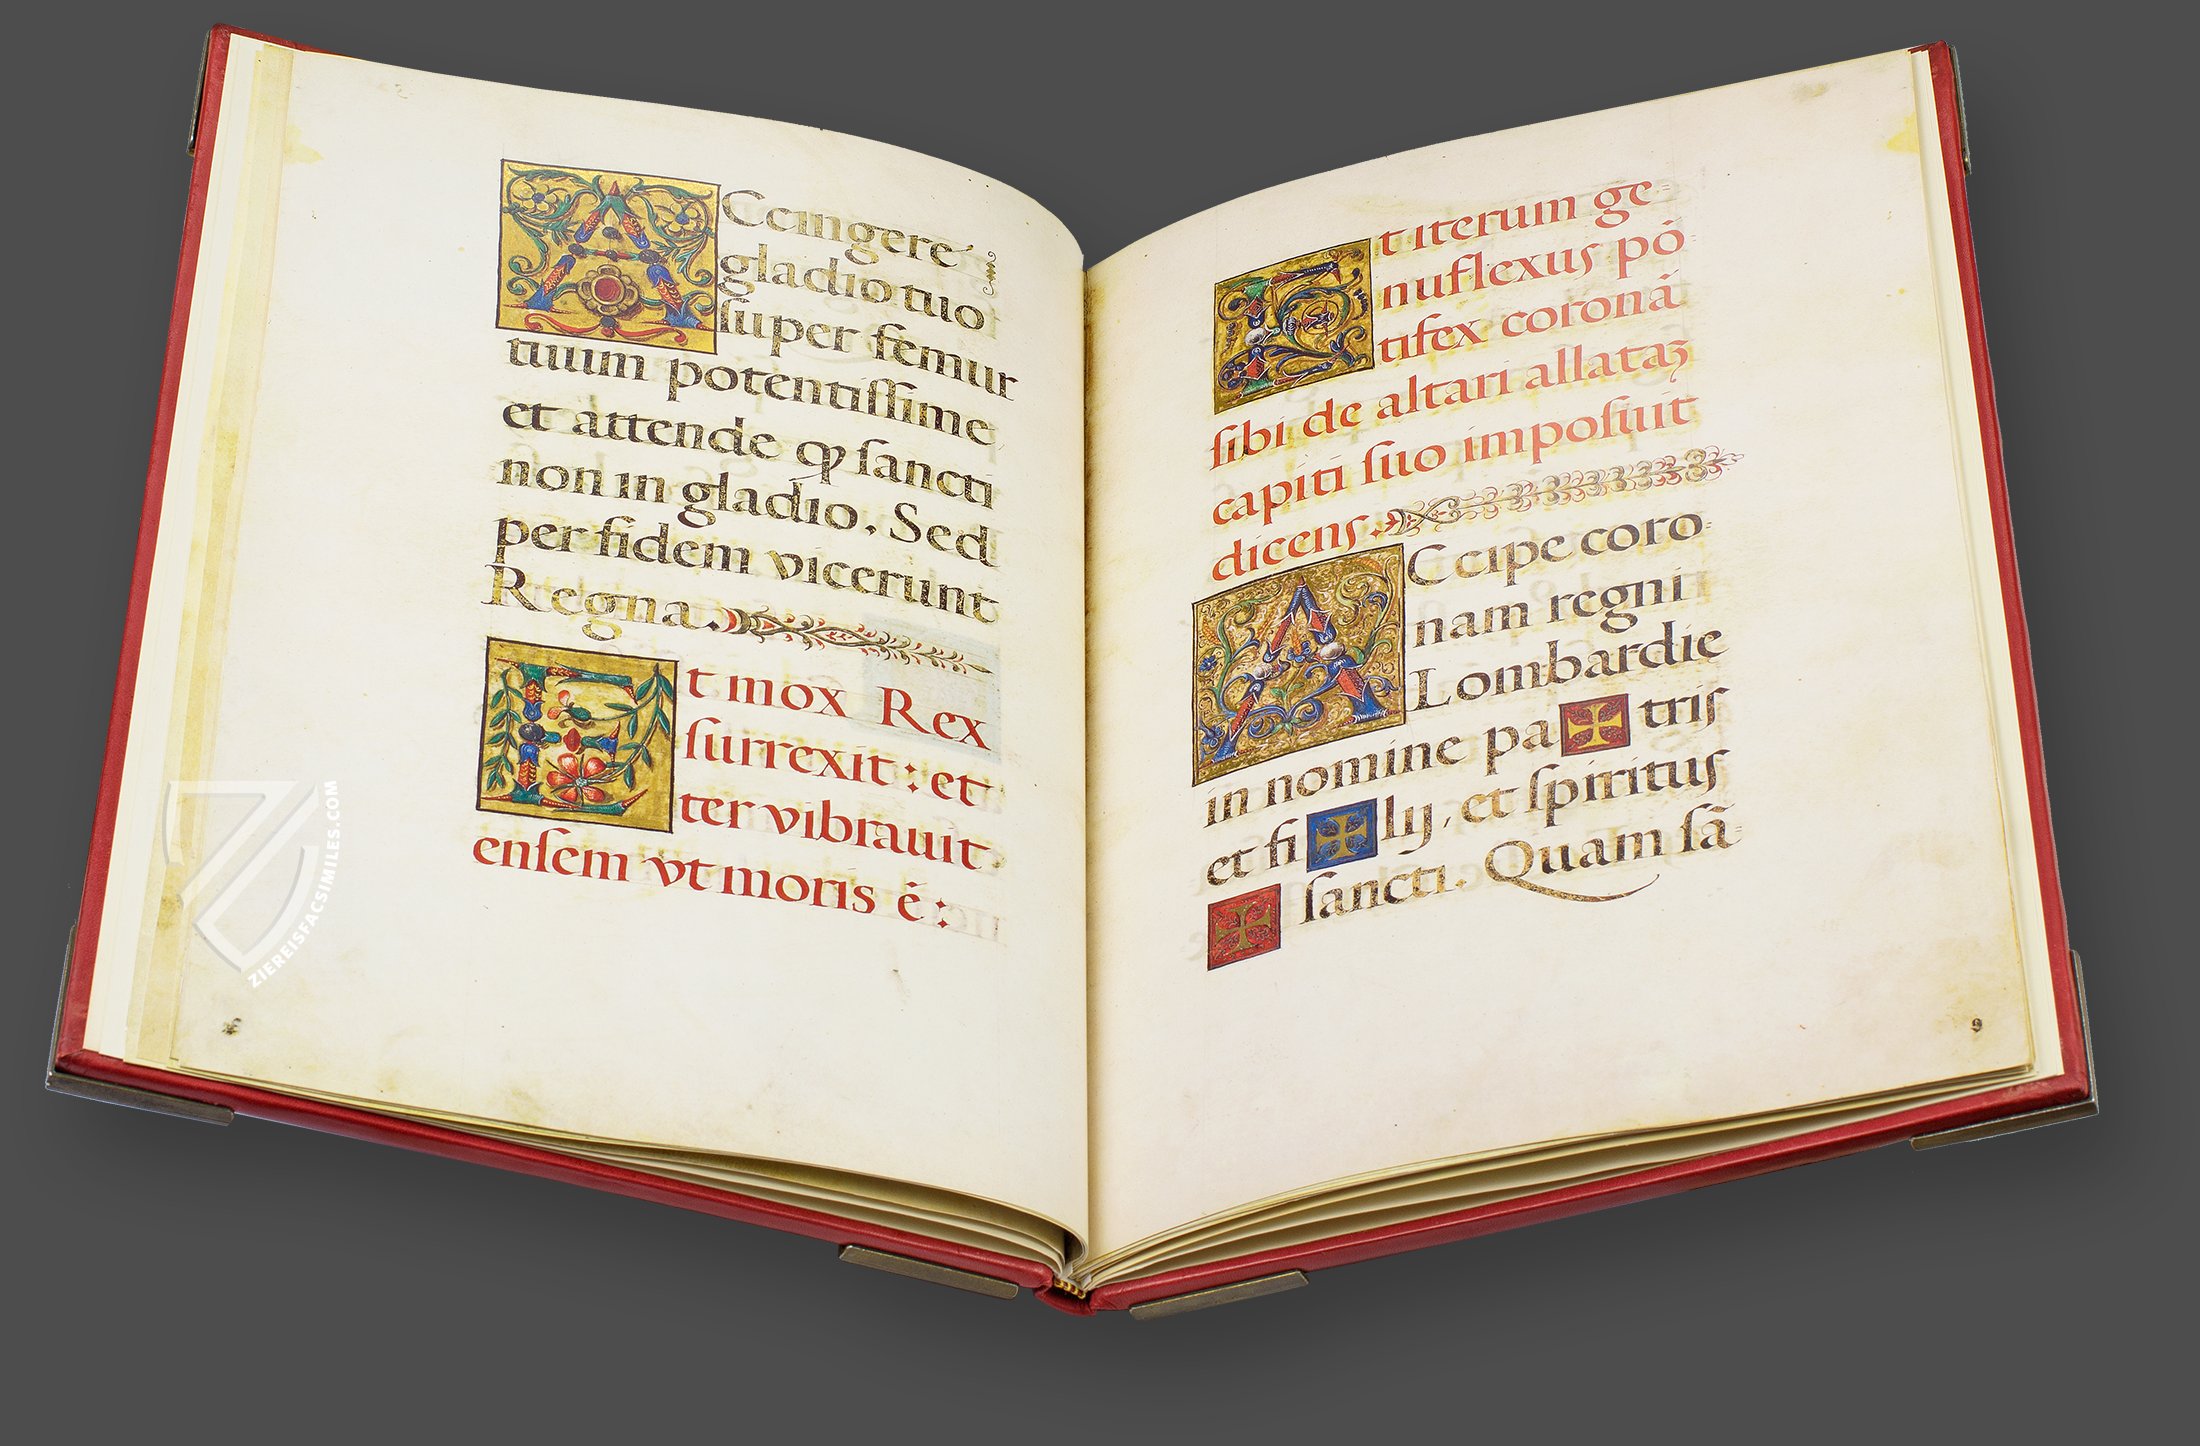 Accingere
gladio tuo
ſuper femur
tuum potentiſſime
et attende ꝙ ſancti
non in gladio. Sed
per fidem vicerunt
Regna.
Et mox Rex
ſurrexit: et
ter vibrauit
enſem vt moris ē:
Et iterum ge=
nuflexus pō
tifex coronā
tifex coronā
ſibi de altari allataꝫ
capiti ſuo impoſuit
dicens.
Accipe coro=
nam regni
Lombardie
in nomine pa✠tris
et fi✠lij, et ſpiritus
✠ ſancti. Quam ſā=
9
ZIEREISFACSIMILES.COM